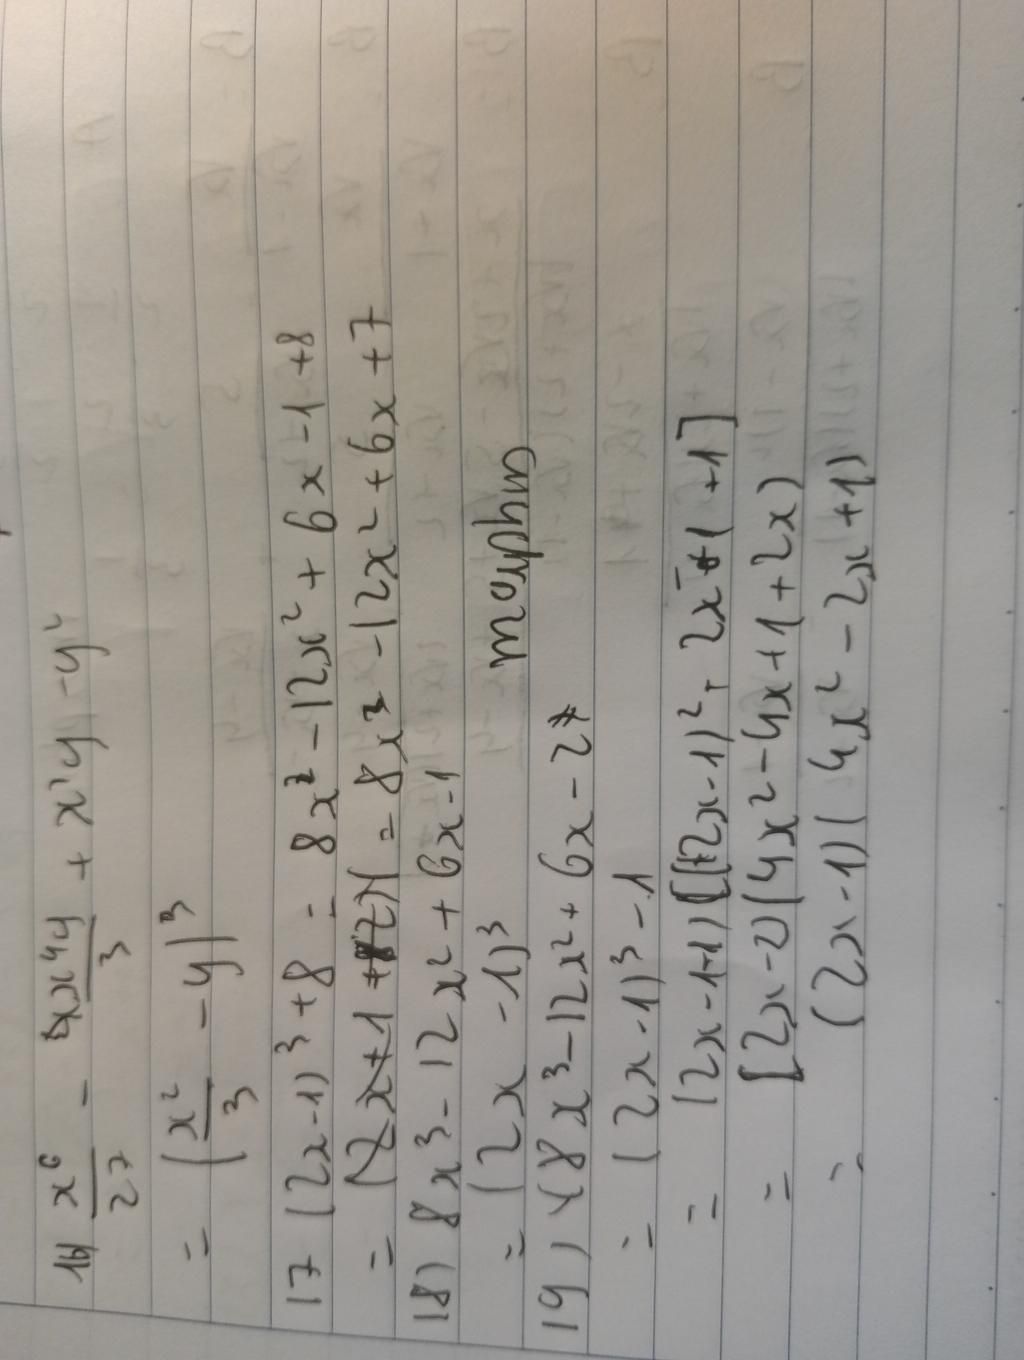 16) x⁶/27 - xx⁴y/3 + x²y - y²
= (x²/3 - y)³
17 (2x-1)³ + 8 = 8x³ - 12x² + 6x - 1 + 8
= 8x³ - 12x² + 6x + 7
18) 8x³ - 12x² + 6x - 1
= (2x - 1)³ morphin
19) 8x³ - 12x² + 6x - 2
= (2x - 1)³ - 1
= (2x-1-1)[(2x-1)² + 2x-1 +1]
= (2x-2)(4x² - 4x + 1 + 2x)
= (2x-1)(4x² - 2x + 1)